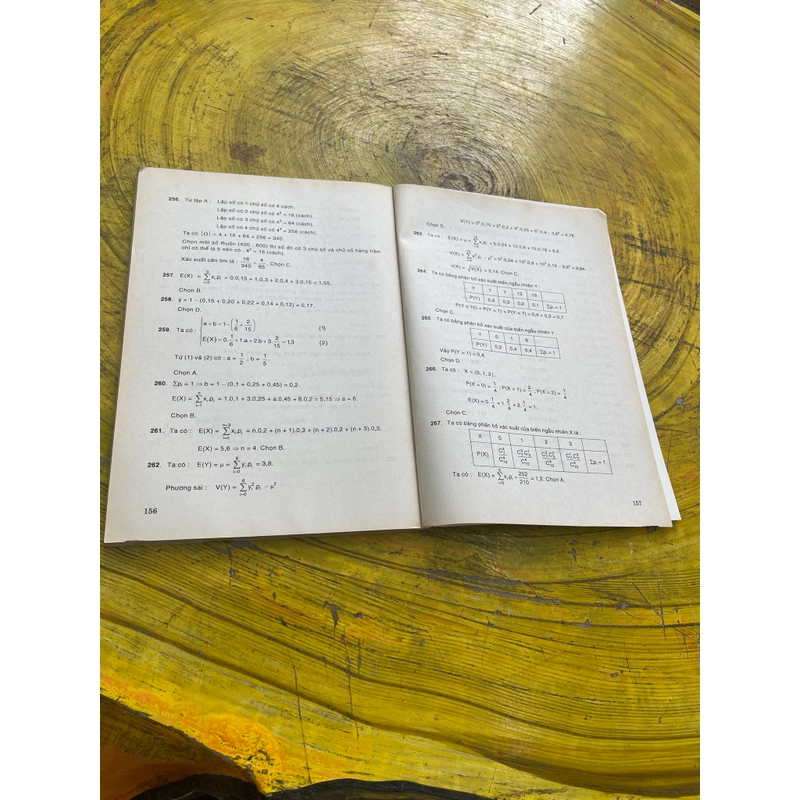 256. Từ tập A : Lập số có 1 chữ số có 4 cách.
Lập số có 2 chữ số có 4² = 16 (cách).
Lập số có 3 chữ số có 4³ = 64 (cách).
Lập số có 4 chữ số có 4⁴ = 256 (cách).
Ta có |Ω| = 4 + 16 + 64 + 256 = 340.
Chọn một số thuộc [400 ; 600] thì số đó có 3 chữ số và chữ số hàng trăm
chỉ có thể là 5 nên có : 4² = 16 (cách).
Xác suất cần tìm là : 16/340 = 4/85. Chọn C.
257. E(X) = Σ xᵢpᵢ = 0.0,15 + 1.0,3 + 2.0,4 + 3.0,15 = 1,55.
Chọn B.
258. y = 1 − (0,15 + 0,20 + 0,22 + 0,14 + 0,12) = 0,17.
Chọn D.
259. Ta có : { a + b = 1 − (1/6 + 2/15) (1)
E(X) = 0.1/6 + 1.a + 2.b + 3.2/15 = 1,3 (2)
Từ (1) và (2) có : a = 1/2 ; b = 1/5
Chọn A.
260. Σpᵢ = 1 ⇒ b = 1 − (0,1 + 0,25 + 0,45) = 0,2.
E(X) = Σ xᵢpᵢ = 1.0,1 + 3.0,25 + a.0,45 + 8.0,2 = 5,15 ⇒ a = 6.
Chọn B.
261. Ta có : E(X) = Σ xᵢpᵢ = n.0,2 + (n + 1).0,3 + (n + 2).0,2 + (n + 3).0,3.
E(X) = 5,6 ⇒ n = 4. Chọn B.
262. Ta có : E(Y) = μ = Σ yᵢpᵢ = 3,8.
Phương sai : V(Y) = Σ yᵢ²pᵢ − μ²
156
Chọn D.
263. Ta có :
Chọn C.
264. Ta có bảng phân bố xác suất của biến ngẫu nhiên Y :
Y 1 7 13 19
P(Y) 0,4 0,3 0,2 0,1 Σpᵢ = 1
P(Y ≤ 10) = P(Y = 1) + P(Y = 7) = 0,4 + 0,3 = 0,7.
Chọn C.
265. Ta có bảng phân bố xác suất của biến ngẫu nhiên Y :
Y 0 1 9
P(Y) 0,2 0,4 0,4 Σpᵢ = 1
Vậy P(Y = 1) = 0,4.
Chọn D.
266. Ta có : X = {0, 1, 2}.
P(X = 0) = 1/4 ; P(X = 1) = 2/4 ; P(X = 2) = 1/4
E(X) = 0.1/4 + 1.2/4 + 2.1/4 = 1.
Chọn C.
267. Ta có bảng phân bố xác suất của biến ngẫu nhiên X là :
X 0 1 2 3
P(X) Σpᵢ = 1
Ta có : E(X) = Σ xᵢpᵢ = 252/210 = 1,2. Chọn A.
157